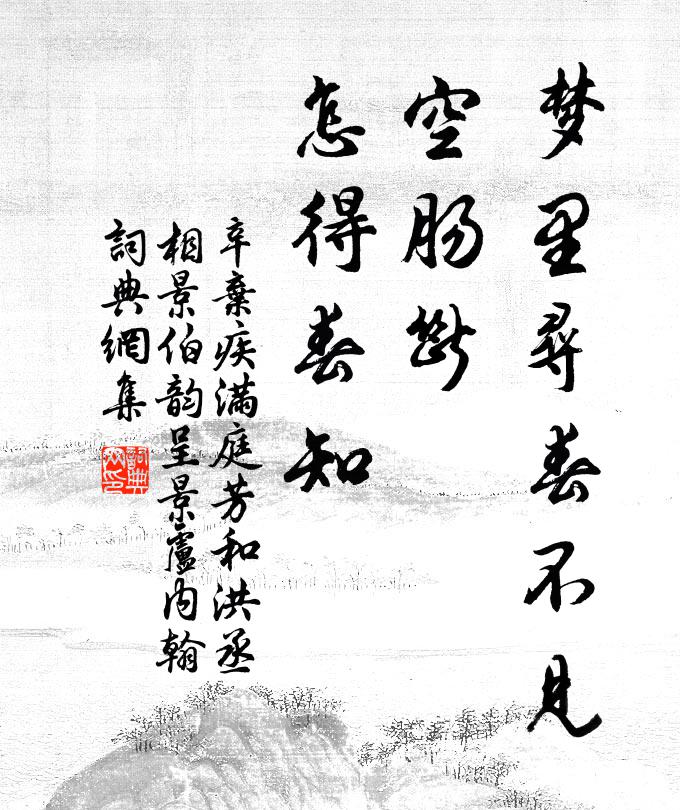 梦里寻春不见
空肠断
怎得春知
辛棄疾满庭芳和洪丞
相景伯韵呈景廬内翰
詞典網集
詞典
网印